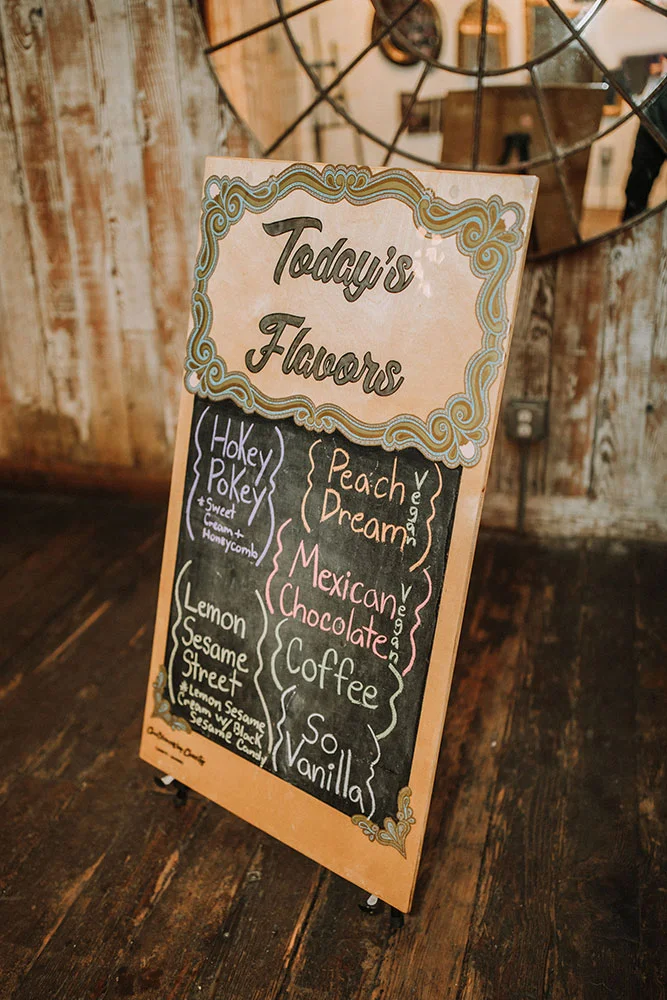 Today's
Flavors
Hokey
Pokey
*Sweet
Cream +
Honeycomb
Lemon
Sesame
Street
*Lemon Sesame
Cream w/ Black
Sesame Candy
Peach
Dream
Vegan
Mexican
Chocolate
Vegan
Coffee
So
Vanilla